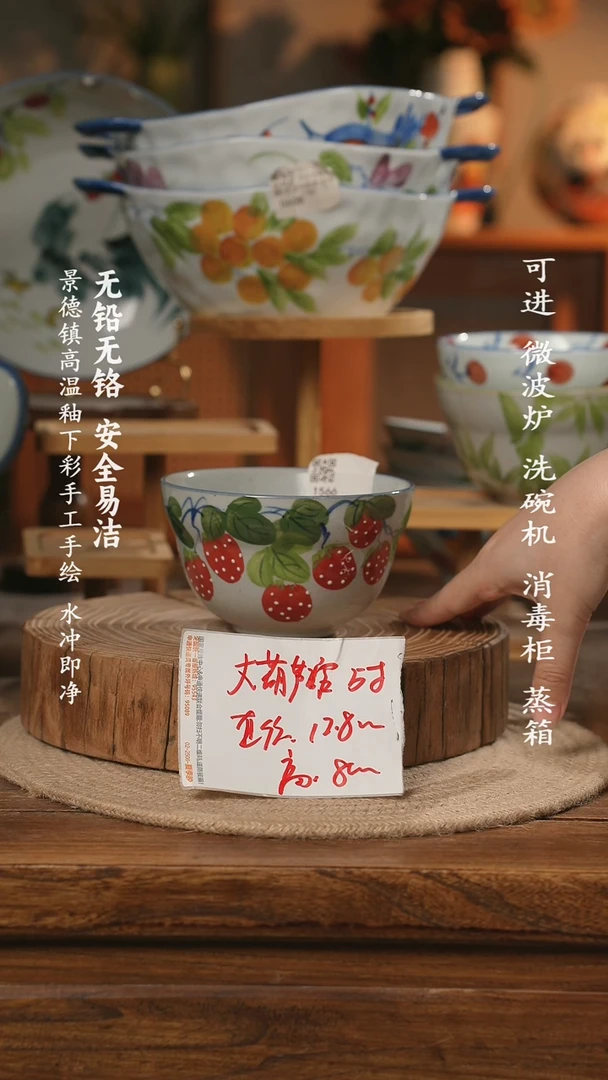 无铅无铬 安全易洁
景德镇高温釉下彩手工手绘 水冲即净
可进 微波炉 洗碗机 消毒柜 蒸箱
T566
大葫芦宫 5寸
直径. 12.8cm
高. 8cm